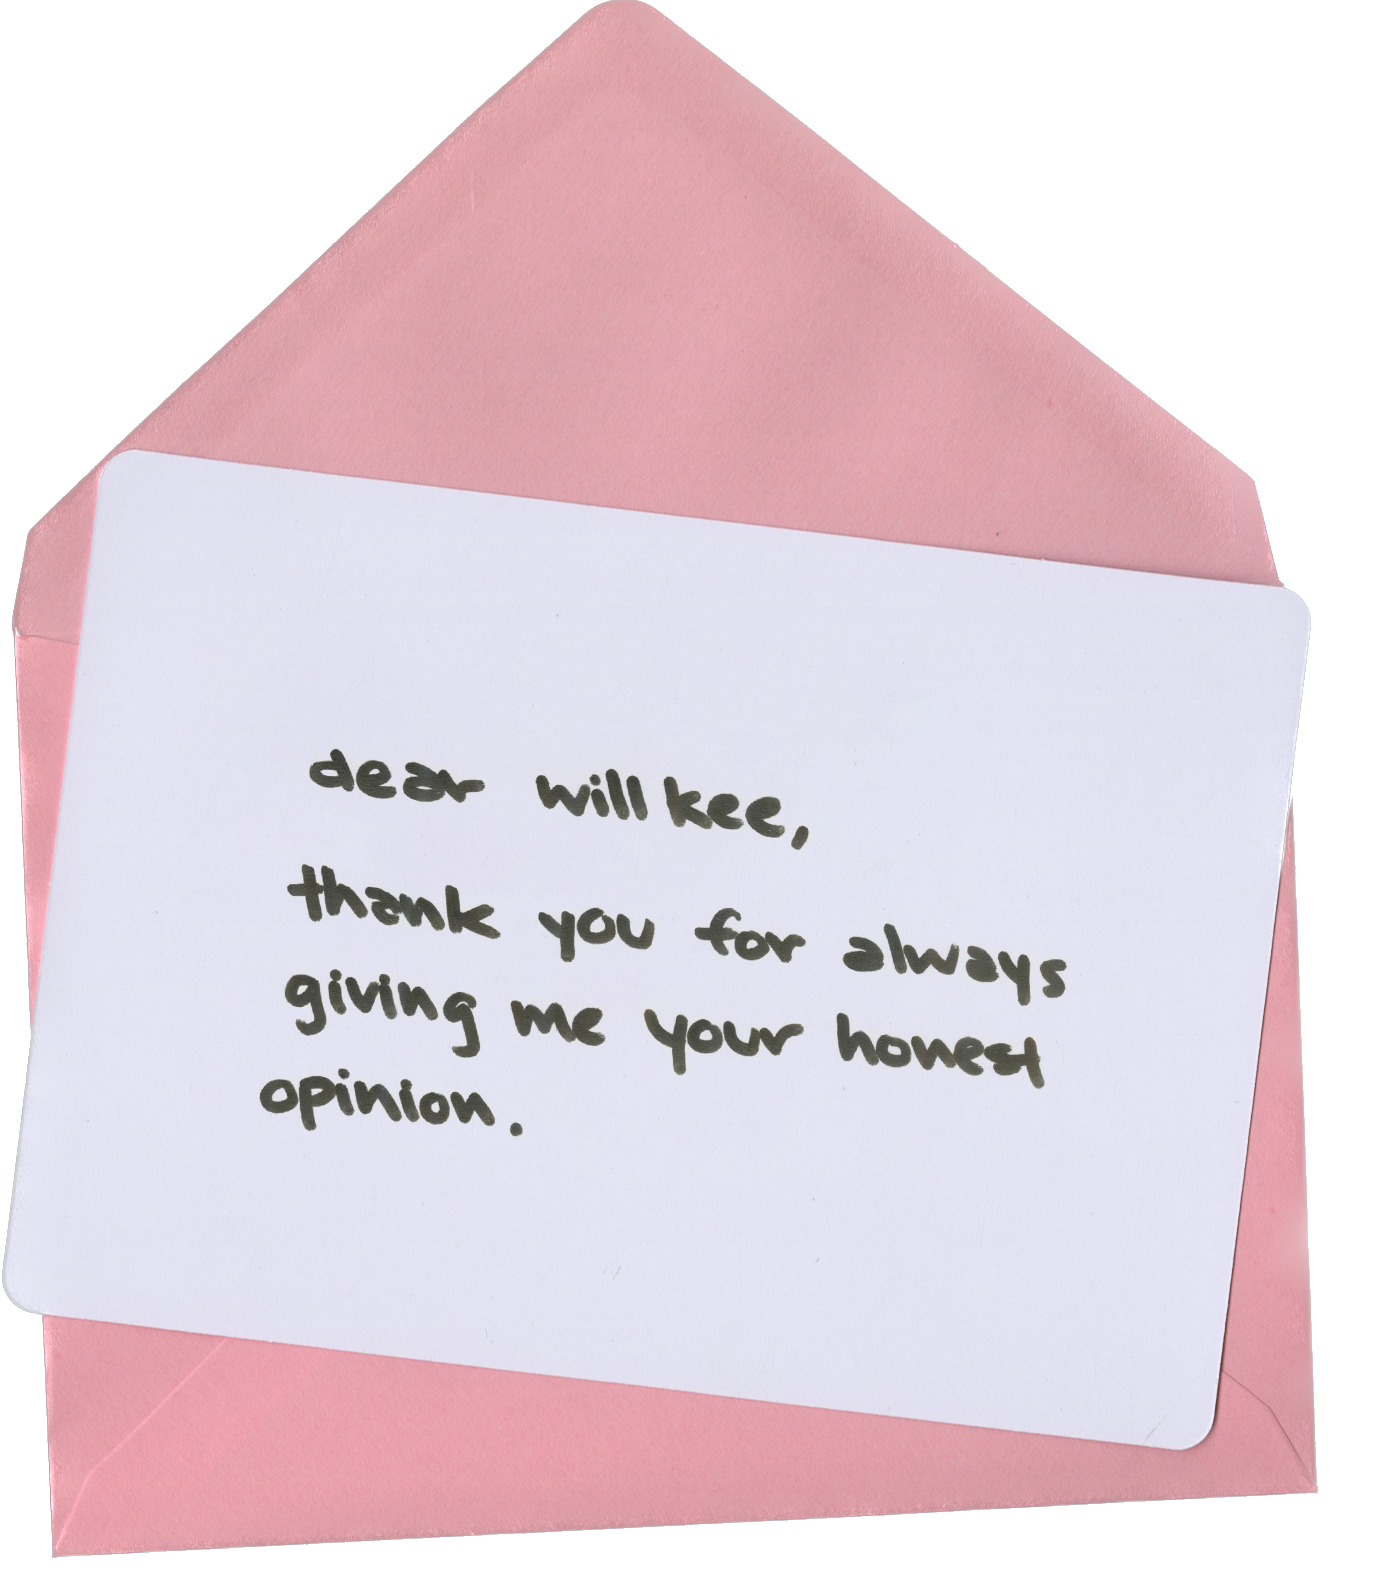 dear will kee,
thank you for always
giving me your honest
opinion.